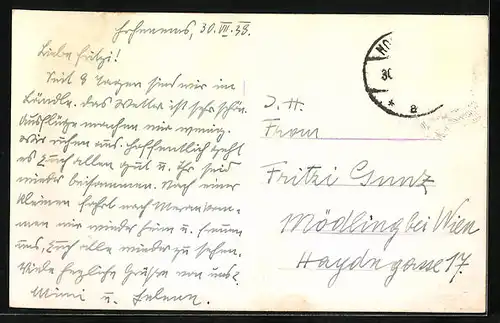 Hohenems, 30.VII.38.
Liebe Fritzi!
Seit 8 Tagen sind wir im
Ländle. das Wetter ist sehr schön.
Ausflüge machen wir wenig.
Wir ruhen aus. Hoffentlich geht
es Euch allen gut u. Ihr seid
wieder beisammen. Nach einer
kleinen Fahrt nach Meran kom-
men wir wieder heim u. freuen
uns, Euch alle wieder zu sehen.
Viele herzliche Grüsse von uns.
Mimi u.
J. H.
Frau
Fritzi Gunz
Mödling bei Wien
Haydngasse 17.
HO
30
* a